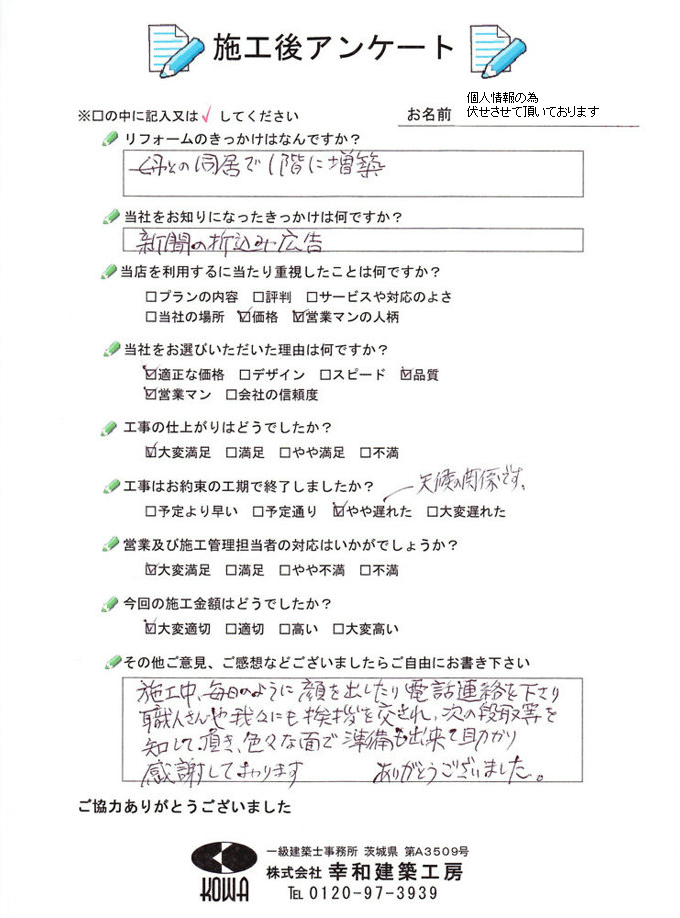 施工後アンケート
※□の中に記入又は✓してください
お名前 個人情報の為
伏せさせて頂いております
リフォームのきっかけはなんですか？
母との同居で1階に増築
当社をお知りになったきっかけは何ですか？
新聞の折込み広告
当店を利用するに当たり重視したことは何ですか？
□プランの内容 □評判 □サービスや対応のよさ
□当社の場所 ☑価格 ☑営業マンの人柄
当社をお選びいただいた理由は何ですか？
☑適正な価格 □デザイン □スピード ☑品質
☑営業マン □会社の信頼度
工事の仕上がりはどうでしたか？
☑大変満足 □満足 □やや満足 □不満
工事はお約束の工期で終了しましたか？ 天候の関係です。
□予定より早い □予定通り ☑やや遅れた □大変遅れた
営業及び施工管理担当者の対応はいかがでしょうか？
☑大変満足 □満足 □やや不満 □不満
今回の施工金額はどうでしたか？
☑大変適切 □適切 □高い □大変高い
その他ご意見、ご感想などございましたらご自由にお書き下さい
施工中、毎日のように顔を出したり電話連絡を下さり
職人さんや我々にも挨拶を交され、次の段取等を
知らして頂き、色々な面で準備も出来て助かり
感謝しております ありがとうございました。
ご協力ありがとうございました
一級建築士事務所 茨城県 第A3509号
KOWA 株式会社 幸和建築工房
TEL 0120-97-3939